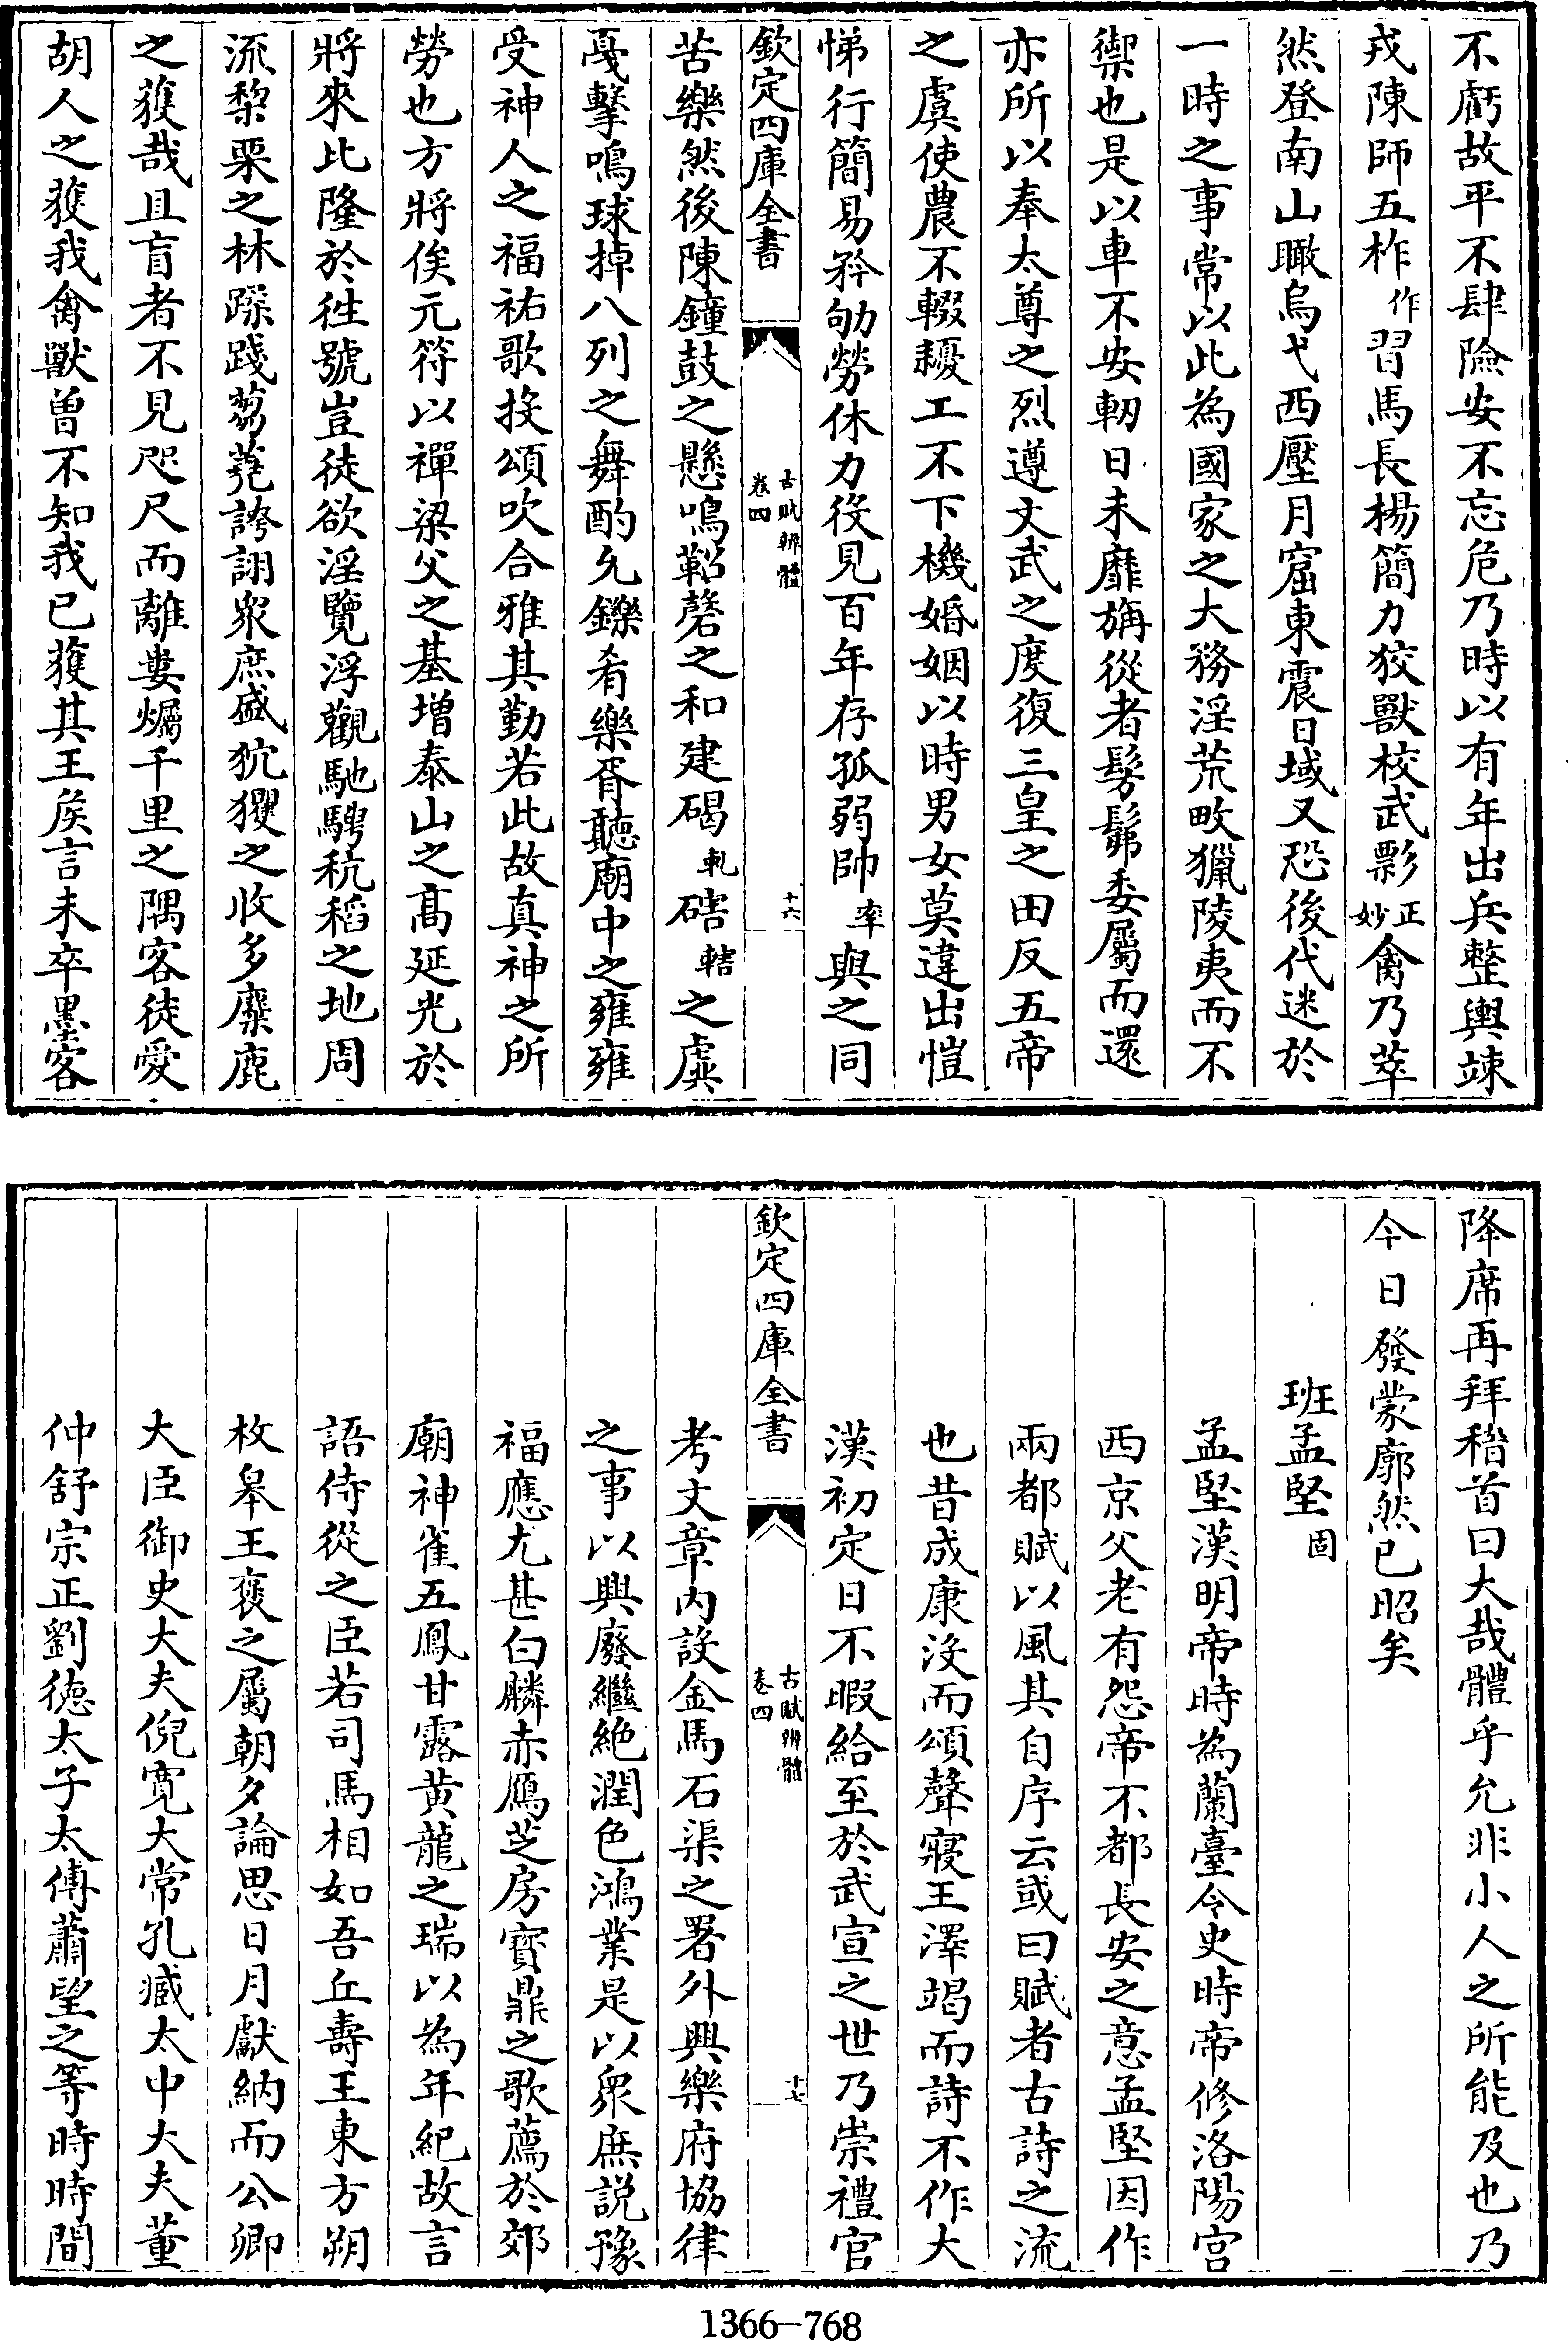 不虧故平不肆險安不忘危乃時以有年出兵整輿竦
戎陳師五柞作習馬長楊簡力狡獸校武票正妙禽乃萃
然登南山瞰烏弋西壓月窟東震日域又恐後代迷於
一時之事常以此為國家之大務淫荒畋獵陵夷而不
禦也是以車不安軔日未靡旃從者髣髴委屬而還
亦所以奉太尊之烈遵文武之度復三皇之田反五帝
之虞使農不輟耰工不下機婚姻以時男女莫違出愷
悌行簡易矜劬勞休力役見百年存孤弱帥率與之同
欽定四庫全書
古賦辨體
卷四
十六
苦樂然後陳鐘鼓之懸鳴鞀磬之和建碣軋磍轄之虡
戛擊鳴球掉八列之舞酌允鑠肴樂胥聽廟中之雍雍
受神人之福祐歌投頌吹合雅其勤若此故真神之所
勞也方將俟元符以禪梁父之基增泰山之髙延光於
將來比隆於徃號豈徒欲淫覽浮觀馳騁秔稻之地周
流黎栗之林蹂踐芻蕘誇詡衆庶盛狖玃之收多麋鹿
之獲哉且盲者不見咫尺而離婁爥千里之隅客徒愛
胡人之獲我禽獸曽不知我已獲其王矦言未卒墨客
降席再拜稽首曰大哉體乎允非小人之所能及也乃
今日發蒙廓然已昭矣
班孟堅固
孟堅漢明帝時為蘭臺令史時帝修洛陽宫
西京父老有怨帝不都長安之意孟堅因作
兩都賦以風其自序云或曰賦者古詩之流
也昔成康沒而頌聲寢王澤竭而詩不作大
漢初定日不暇給至於武宣之世乃崇禮官
欽定四庫全書
古賦辨體
卷四
十七
考文章内設金馬石渠之署外興樂府協律
之事以興廢繼絶潤色鴻業是以衆庶説豫
福應尤甚白麟赤鴈芝房寶鼎之歌薦於郊
廟神雀五鳳甘露黄龍之瑞以為年紀故言
語侍從之臣若司馬相如吾丘壽王東方朔
枚皋王褒之屬朝夕論思日月獻納而公卿
大臣御史大夫倪寛大常孔臧太中大夫董
仲舒宗正劉徳太子太傅蕭望之等時時間
1366-768